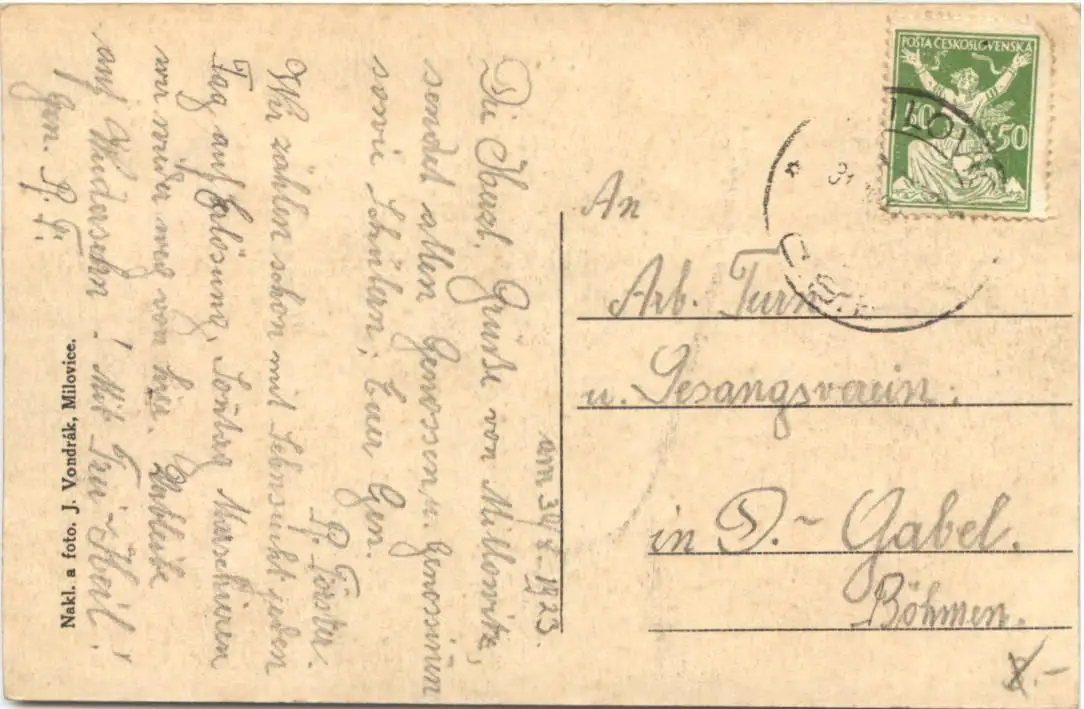 am 31/8 - 1923
Die Herzl. Grüße von Millowitz,
sendet allen Genossen u. Genossinnen
sowie Schülern, Euer Gen.
R. Förster.
Wir zählen schon mit Sehnsucht jeden
Tag auf Erlösung, Sonntag Marschieren
wir wieder weg von hier. Verbleibe
auf Wiedersehn! Mit Frei-Heil!
Gen. R. F.
Nakl. a foto. J. Vondrák, Milovice.
POŠTA ČESKOSLOVENSKÁ
50 50
31
An
Arb. Turn
u. Gesangsverein.
in D.- Gabel.
Böhmen.